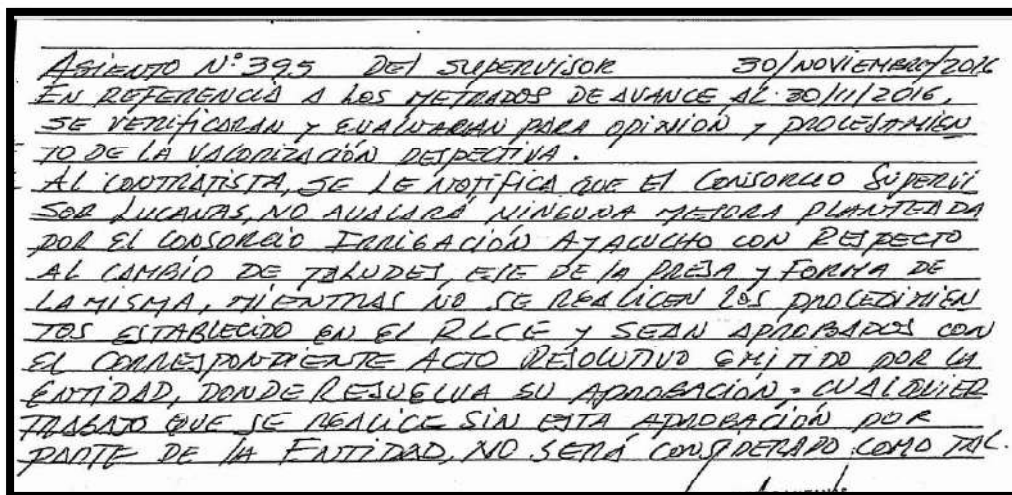 ASIENTO N° 395 DEL SUPERVISOR 30/NOVIEMBRE/2016
EN REFERENCIA A LOS METRADOS DE AVANCE AL 30/11/2016,
SE VERIFICARAN Y EVALUARAN PARA OPINION Y PROCESAMIEN
TO DE LA VALORIZACIÓN RESPECTIVA.
AL CONTRATISTA, SE LE NOTIFICA QUE EL CONSORCIO SUPERVI
SOR LUCANAS, NO AVALARÁ NINGUNA MEJORA PLANTEADA
POR EL CONSORCIO IRRIGACIÓN AYACUCHO CON RESPECTO
AL CAMBIO DE TALUDES, EJE DE LA PRESA Y FORMA DE
LA MISMA, MIENTRAS NO SE REALICEN LOS PROCEDIMIEN
TOS ESTABLECIDO EN EL RLCE Y SEAN APROBADOS CON
EL CORRESPONDIENTE ACTO RESOLUTIVO EMITIDO POR LA
ENTIDAD, DONDE RESUELVA SU APROBACIÓN, CUALQUIER
TRABAJO QUE SE REALICE SIN ESTA APROBACIÓN POR
PARTE DE LA ENTIDAD, NO SERÁ CONSIDERADO COMO TAL.